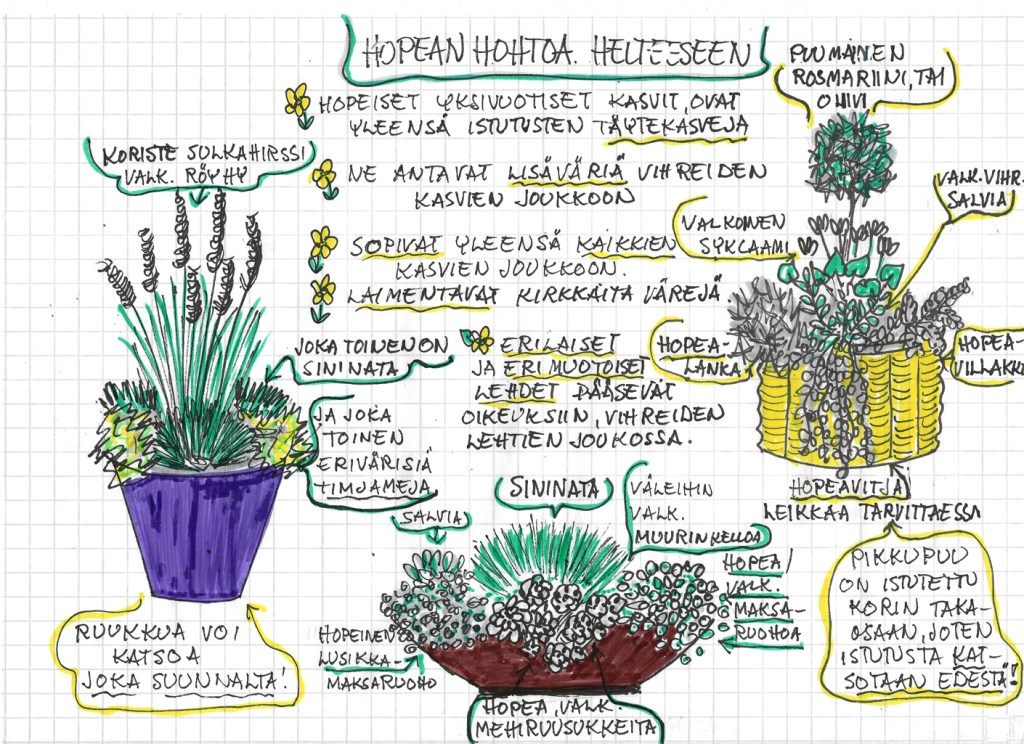 HOPEAN HOHTOA. HELTEESEEN
HOPEISET YKSIVUOTISET KASVIT, OVAT
YLEENSÄ ISTUTUSTEN TÄYTEKASVEJA
NE ANTAVAT LISÄVÄRIÄ VIHREIDEN
KASVIEN JOUKKOON
SOPIVAT YLEENSÄ KAIKKIEN
KASVIEN JOUKKOON.
LAIMENTAVAT KIRKKAITA VÄREJÄ
ERILAISET
JA ERI MUOTOISET
LEHDET PÄÄSEVÄT
OIKEUKSIIN, VIHREIDEN
LEHTIEN JOUKOSSA.
KORISTE SULKAHIRSSI
VALK. RÖYHY
JOKA TOINEN ON
SININATA
JA JOKA
TOINEN
ERIVÄRISIÄ
TIMJAMEJA
RUUKKUA VOI
KATSOA
JOKA SUUNNALTA!
PUUMAINEN
ROSMARIINI, TAI
OLIVI
VALK.VIHR.
SALVIA
VALKOINEN
SYKLAAMI
HOPEA-
LANKA
HOPEA-
VILLAKKO
HOPEAVITJA
LEIKKAA TARVITTAESSA
PIKKUPUU
ON ISTUTETTU
KORIN TAKA-
OSAAN, JOTEN
ISTUTUSTA KAT-
SOTAAN EDESTÄ!
SALVIA
SININATA
VÄLEIHIN
VALK.
MUURINKELLOA
HOPEA/
VALK.
MAKSA-
RUOHOA
HOPEINEN
LUSIKKA-
MAKSARUOHO
HOPEA, VALK.
MEHIRUUSUKKEITA